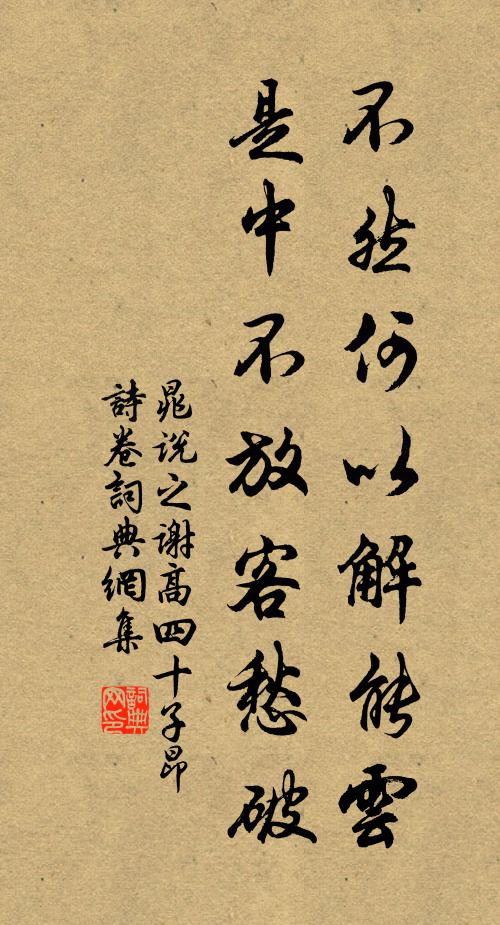 不然何以解能雲
是中不放客愁破
晁說之謝高四十子昂
詩卷詞典網集
詞典網印